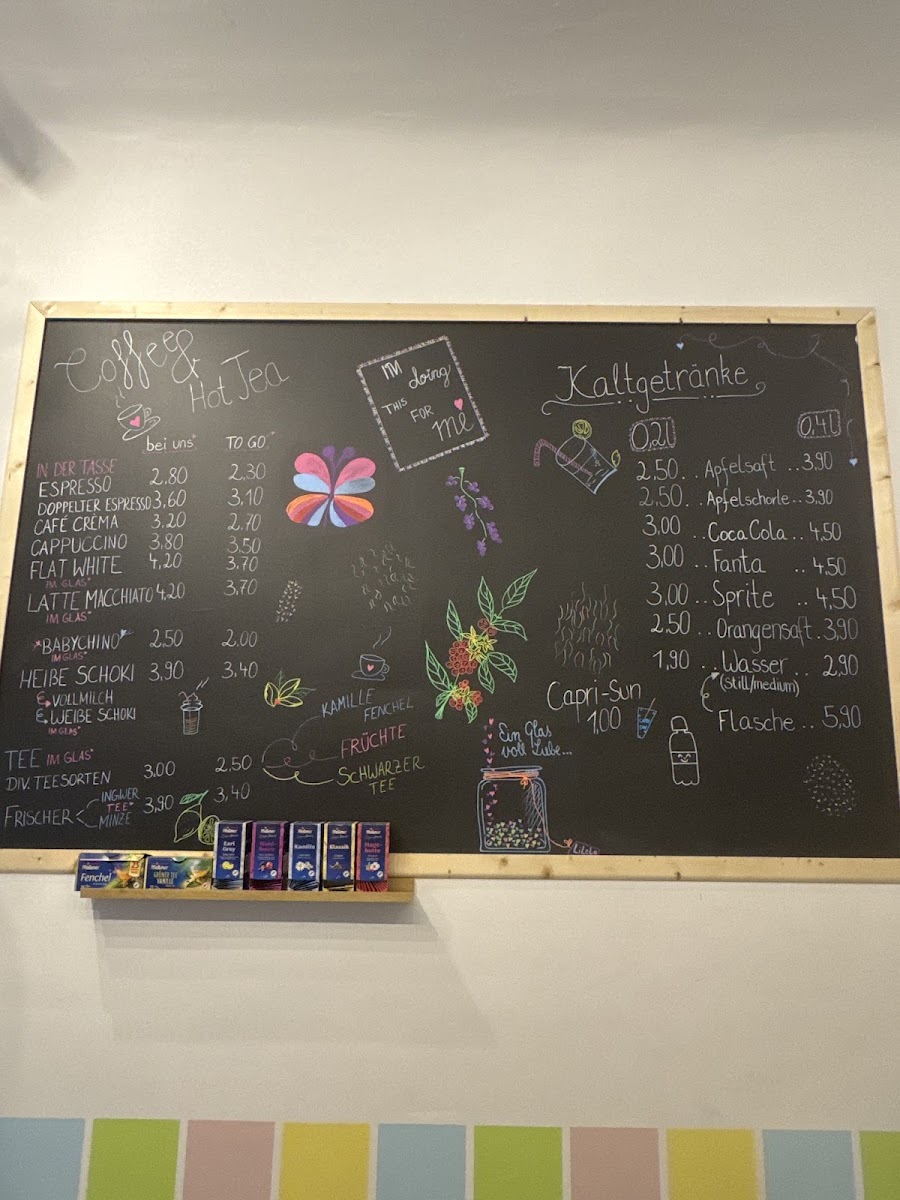 Coffee &
Hot Tea
bei uns* TO GO*
IN DER TASSE
ESPRESSO 2,80 2,30
DOPPELTER ESPRESSO 3,60 3,10
CAFÉ CRÈMA 3,20 2,70
CAPPUCCINO 3,80 3,50
FLAT WHITE 4,20 3,70
IM GLAS*
LATTE MACCHIATO 4,20 3,70
IM GLAS*
*BABYCHINO* 2,50 2,00
IM GLAS*
HEIßE SCHOKI 3,90 3,40
VOLLMILCH
WEIßE SCHOKI
IM GLAS*
TEE IM GLAS*
DIV. TEESORTEN 3,00 2,50
FRISCHER INGWER TEE* MINZE 3,90 3,40
KAMILLE
FENCHEL
FRÜCHTE
SCHWARZER
TEE
I'M doing
THIS FOR
me
Kaltgetränke
0,2l 0,4l
2,50. . Apfelsaft . . 3,90
2,50. . Apfelschorle . . 3,90
3,00 . . Coca Cola . . 4,50
3,00 . . Fanta . . 4,50
3,00 . . Sprite . . 4,50
2,50 . . Orangensaft . 3,90
1,90 . . Wasser . . 2,90
(still/medium)
Flasche . . 5,90
Capri-Sun
1,00
Ein Glas
voll Liebe...
Meßmer
Fenchel
Meßmer
GRÜNER TEE
VANILLE
Meßmer
Earl
Grey
Meßmer
Meßmer
Kamille
Meßmer
Klassik
Meßmer
Hage-
butte